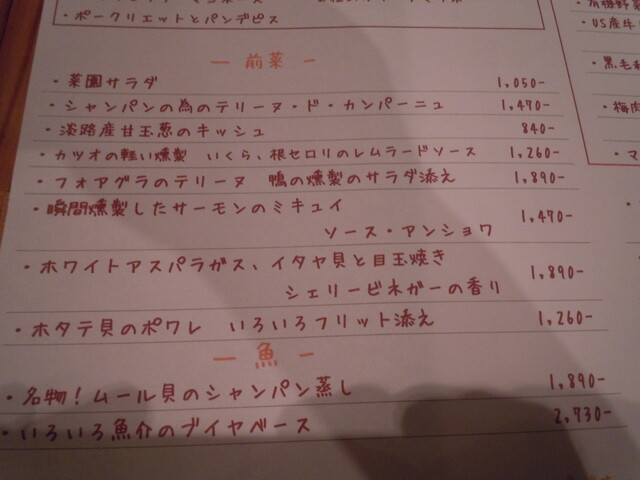 ・ポークリエットとパンデピス
― 前菜 ―
・菜園サラダ 1,050-
・シャンパンの為のテリーヌ・ド・カンパーニュ 1,470-
・淡路産甘玉葱のキッシュ 840-
・カツオの軽い燻製 いくら、根セロリのレムラードソース 1,260-
・フォアグラのテリーヌ 鴨の燻製のサラダ添え 1,890-
・瞬間燻製したサーモンのミキュイ
ソース・アンショワ 1,470-
・ホワイトアスパラガス、イタヤ貝と目玉焼き
シェリービネガーの香り 1,890-
・ホタテ貝のポワレ いろいろフリット添え 1,260-
― 魚 ―
・名物！ムール貝のシャンパン蒸し 1,890-
・いろいろ魚介のブイヤベース 2,730-
・有機野菜
・US産牛
・黒毛和
・梅肉
・マ